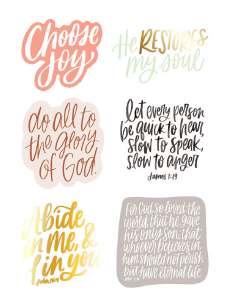 Choose
joy
He RESTORES
my soul
do all to
the glory
of God.
let every person
be quick to hear,
slow to speak,
slow to anger
James 1:19
Abide
in me, &
I in you
For God so loved the
world, that he gave
his only Son, that
whoever believes in
him should not perish
but have eternal life.